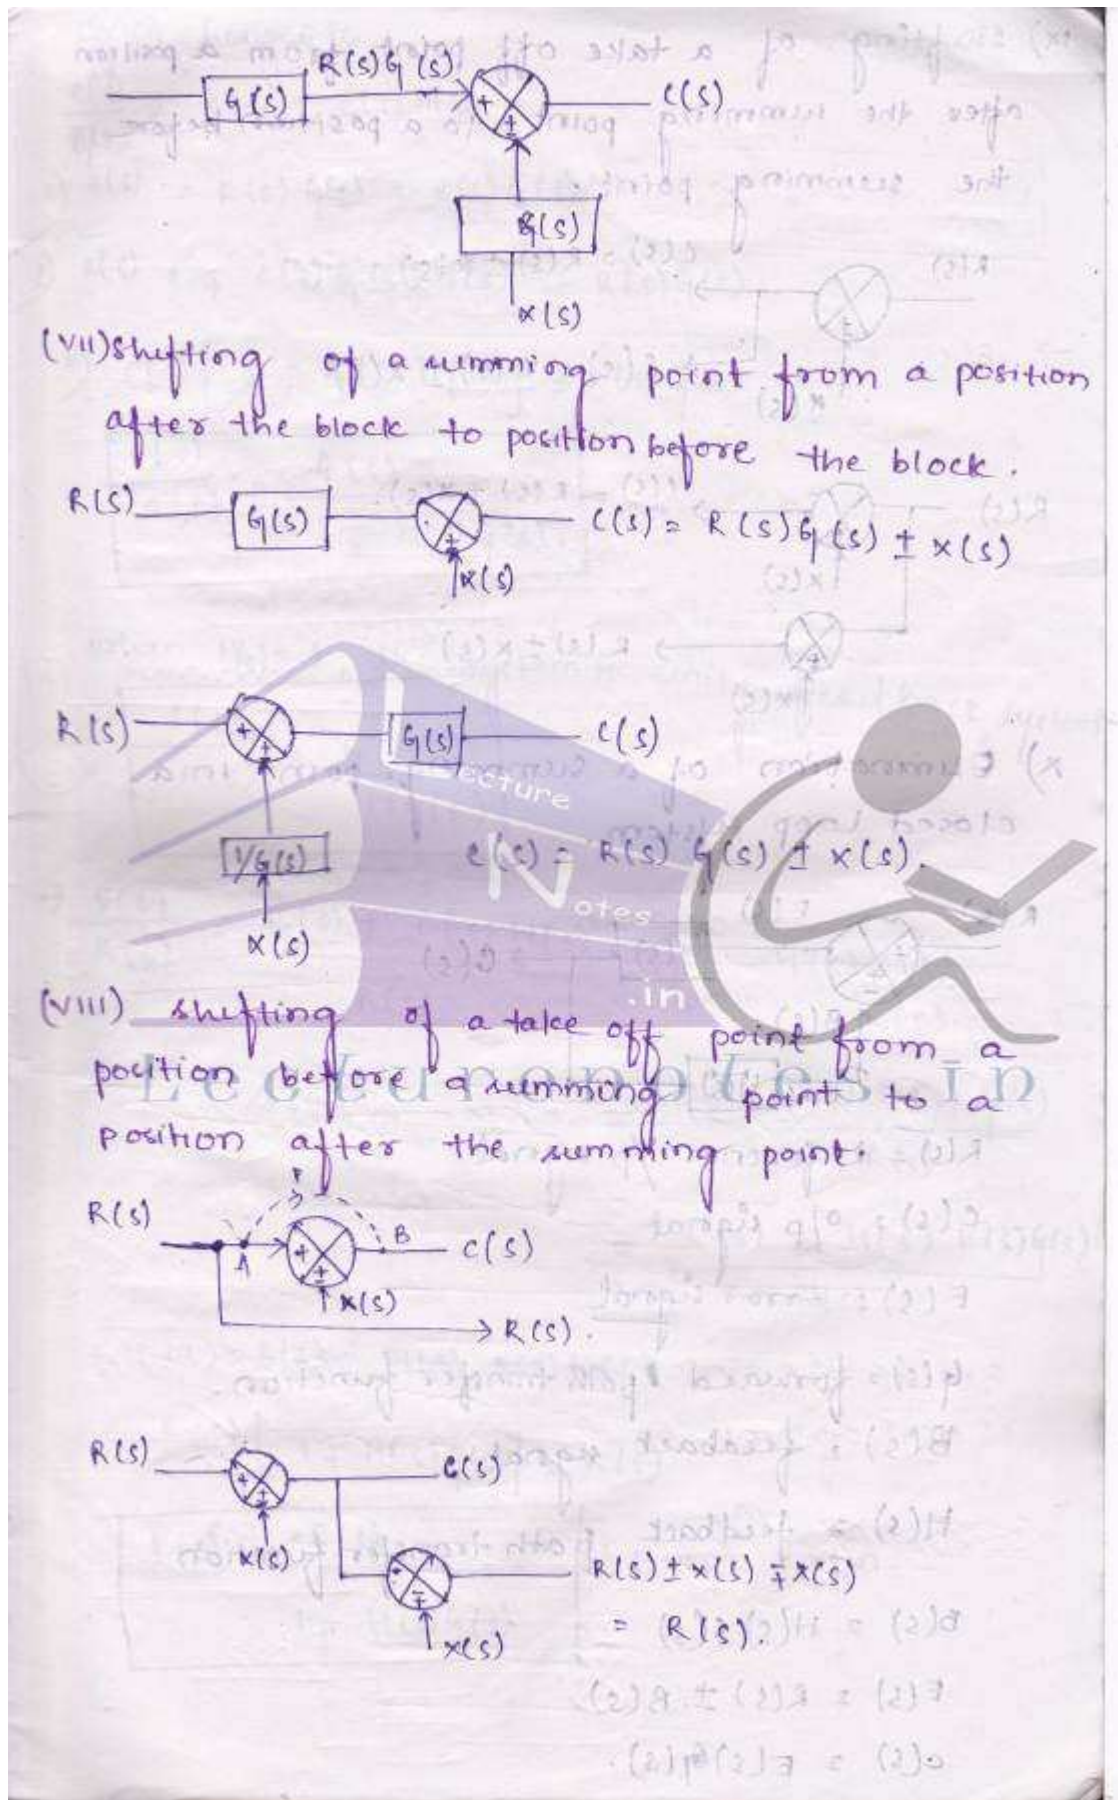 R(s)G(s)
G(s)
+
±
C(s)
G(s)
X(s)
(VII) Shifting of a summing point from a position
after the block to position before the block.
R(S)
G(s)
±
X(s)
C(s) = R(s)G(s) ± X(s)
R(s)
+
±
G(s)
C(s)
1/G(s)
C(s) = R(s) G(s) ± X(s).
X(s)
Lecture
Notes
.in
(VIII) Shifting of a take off point from a
position before a summing point to a
Lecturenotes.in
position after the summing point.
R(s)
A
+
±
B
C(s)
X(s)
R(s).
R(s)
+
±
C(s)
X(s)
+
∓
R(s) ± X(s) ∓ X(s)
X(s)
= R(s).